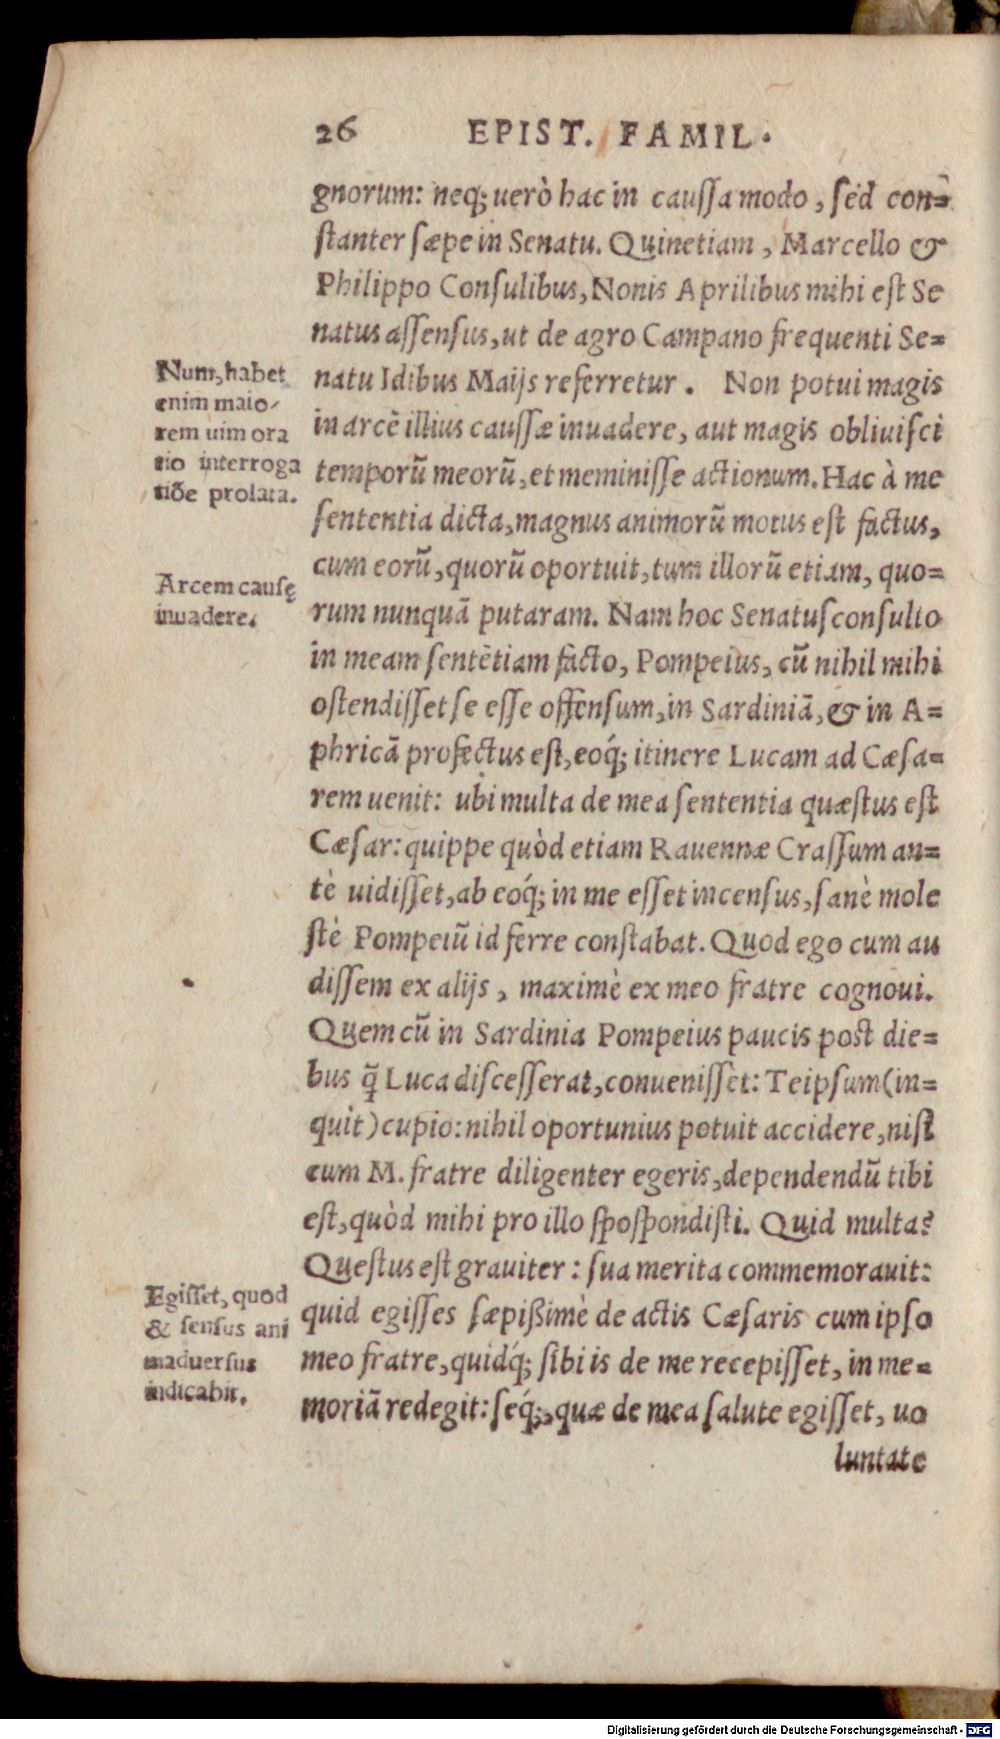 26 EPIST. FAMIL.
gnorum: neq; uerò hac in caussa modo, sed con=
stanter sæpe in Senatu. Quinetiam, Marcello &
Philippo Consulibus, Nonis Aprilibus mihi est Se
natus assensus, ut de agro Campano frequenti Se=
natu Idibus Maijs referretur. Non potui magis
in arcē illius caussæ inuadere, aut magis obliuisci
temporū meorū, et meminisse actionum. Hac à me
sententia dicta, magnus animorū motus est factus,
cum eorū, quorū oportuit, tum illorū etiam, quo=
rum nunquā putaram. Nam hoc Senatusconsulto
in meam sentētiam facto, Pompeius, cū nihil mihi
ostendisset se esse offensum, in Sardiniā, & in A=
phricā profectus est, eoq́; itinere Lucam ad Cæsa=
rem uenit: ubi multa de mea sententia quæstus est
Cæsar: quippe quòd etiam Rauennæ Crassum an=
tè uidisset, ab eoq́; in me esset incensus, sanè mole
stè Pompeiū id ferre constabat. Quod ego cum au
dissem ex alijs, maximè ex meo fratre cognoui.
Quem cū in Sardinia Pompeius paucis post die=
bus q̃ Luca discesserat, conuenisset: Te ipsum (in=
quit) cupio: nihil oportunius potuit accidere, nisi
cum M. fratre diligenter egeris, dependendū tibi
est, quòd mihi pro illo spospondisti. Quid multa?
Questus est grauiter: sua merita commemorauit:
quid egisses sæpißimè de actis Cæsaris cum ipso
meo fratre, quidq́; sibi is de me recepisset, in me=
moriā redegit: seq́;, quæ de mea salute egisset, uo
luntate
Num, habet
enim maio-
rem uim ora
tio interroga
tiōe prolata.
Arcem causę
inuadere.
Egisset, quod
& sensus ani
maduersus
indicabit.
Digitalisierung gefördert durch die Deutsche Forschungsgemeinschaft - DFG